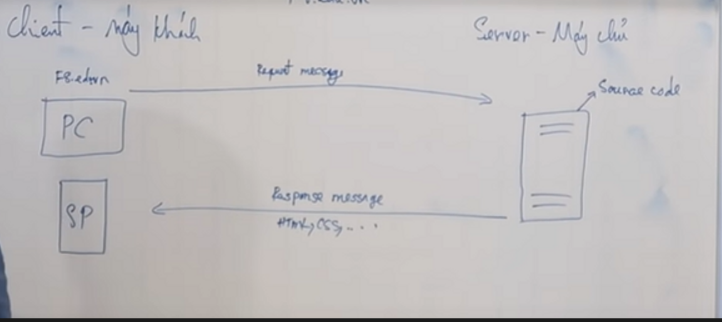 Client - máy khách
Server - Máy chủ
Request message
Source code
PC
Response message
HTML, CSS, ...
SP